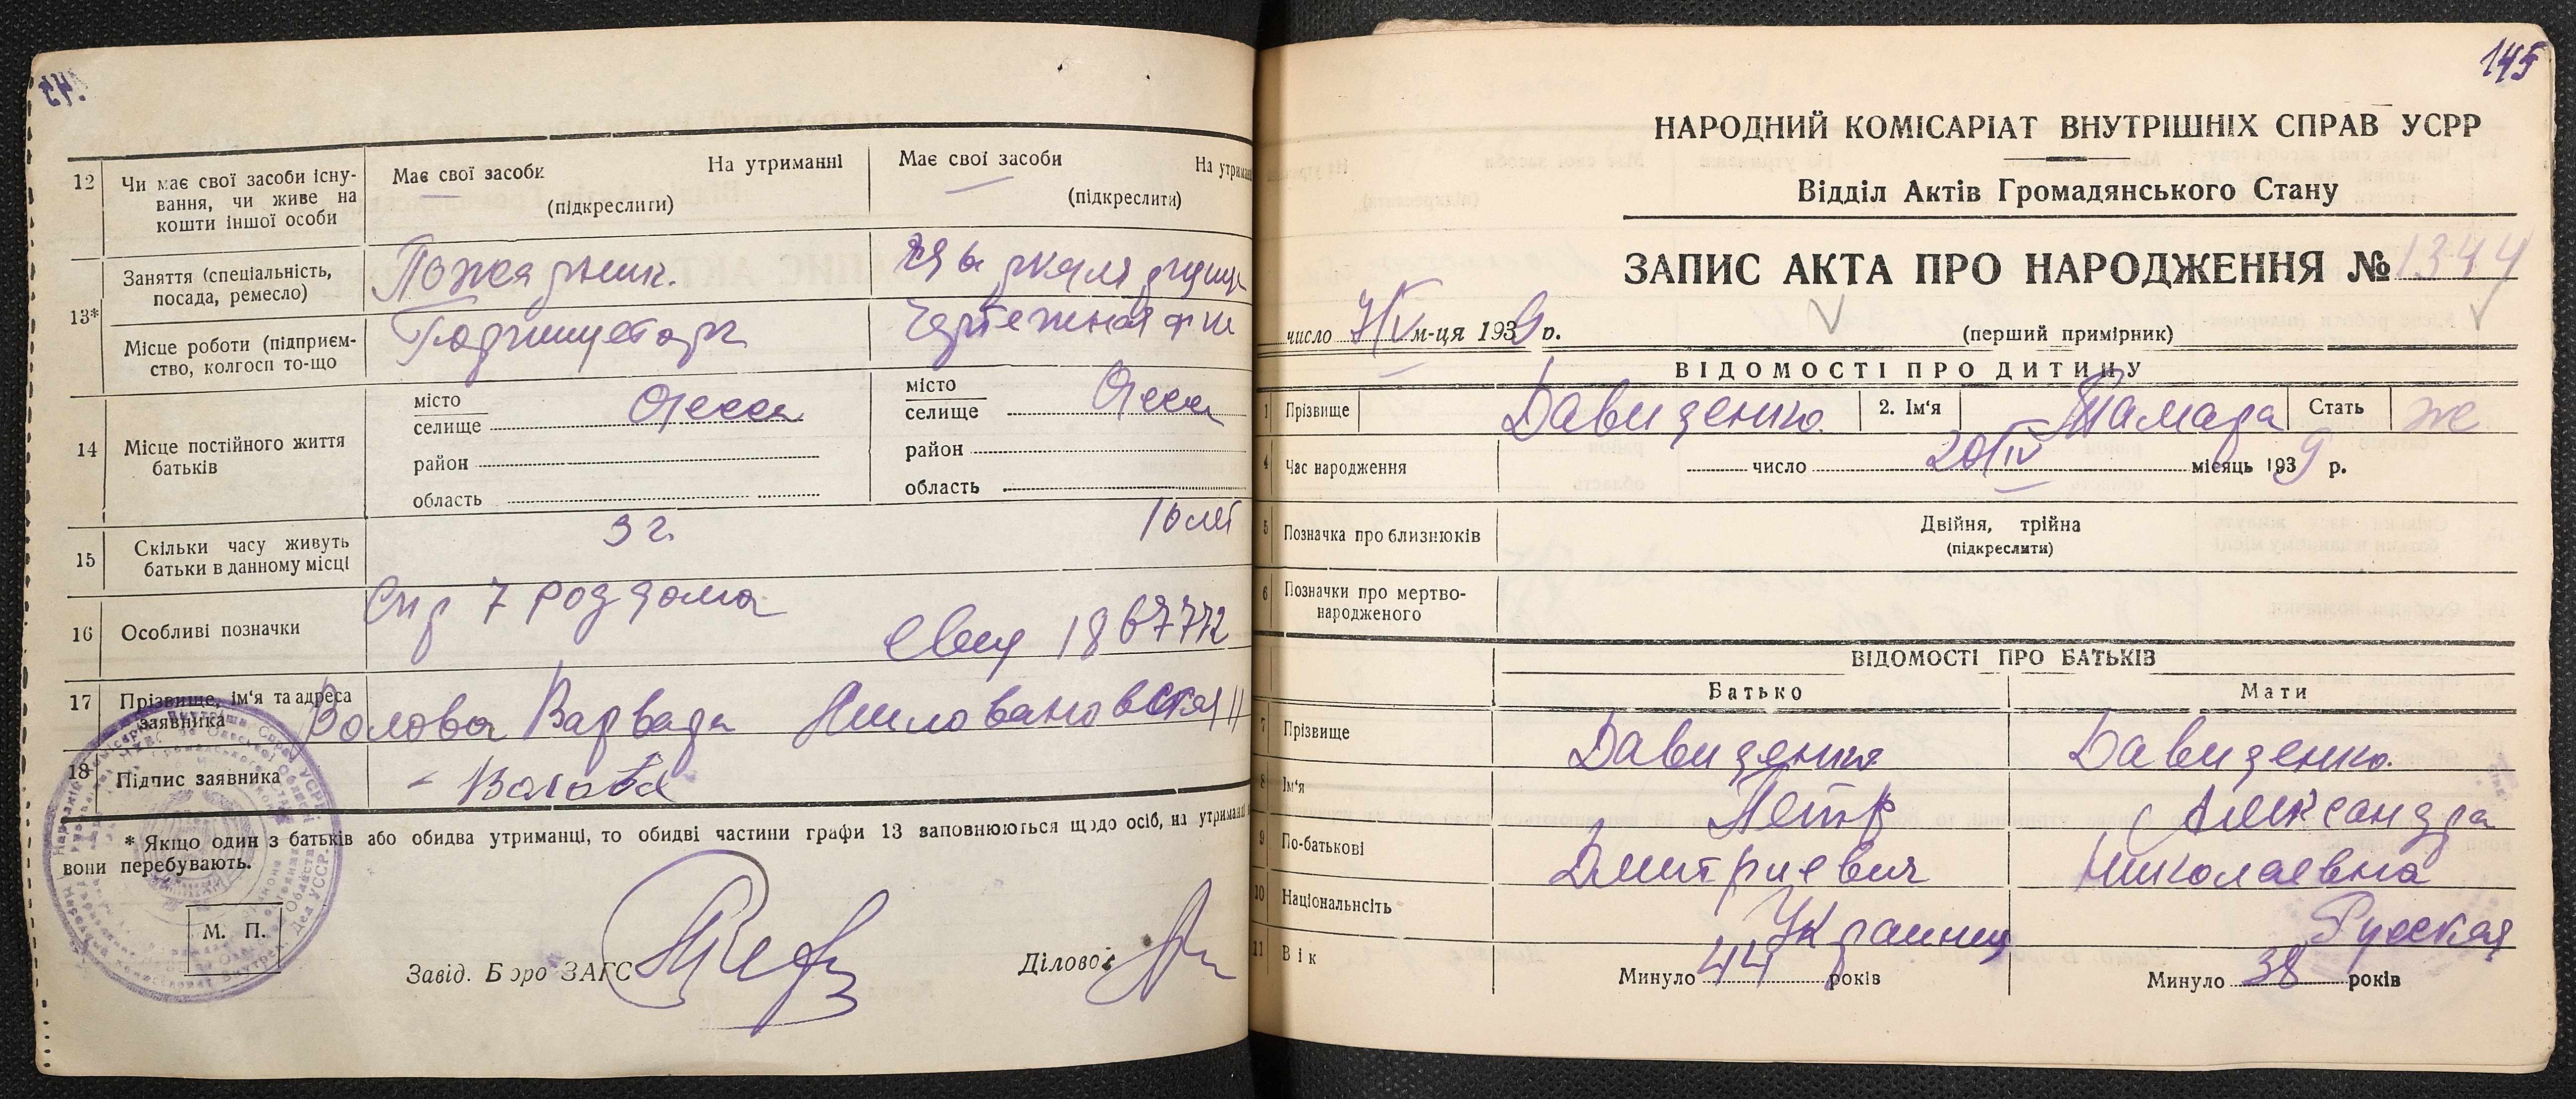 12 Чи має свої засоби існу-
вання, чи живе на
кошти іншої особи
Має свої засоби На утриманні
(підкреслити)
Має свої засоби На утриман
(підкреслити)
13*
Заняття (спеціальність,
посада, ремесло)
Пожарник.
Місце роботи (підприєм-
ство, колгосп то-що
14 Місце постійного життя
батьків
місто
селище Одесса
район
область
місто
селище Одесса
район
область
15 Скільки часу живуть
батьки в данному місці
3 г.
16 лет
16 Особливі позначки
Спр 7 роддома
17 Прізвище, ім'я та адреса
заявника
Волова Варвара
18 Підпис заявника
- Волова
* Якщо один з батьків або обидва утриманці, то обидві частини графи 13 заповнюються щодо осіб, на утриманні
вони перебувають.
М. П.
Завід. Бюро ЗАГС
Діловод
145
НАРОДНИЙ КОМІСАРІАТ ВНУТРІШНІХ СПРАВ УСРР
Відділ Актів Громадянського Стану
ЗАПИС АКТА ПРО НАРОДЖЕННЯ № 1344
число 7/V м-ця 1939 р.
(перший примірник)
ВІДОМОСТІ ПРО ДИТИНУ
1 Прізвище Давиденко 2. Ім'я Тамара Стать же
4 Час народження число 20/IV місяць 1939 р.
5 Позначка про близнюків Двійня, трійна
(підкреслити)
6 Позначки про мертво-
народженого
ВІДОМОСТІ ПРО БАТЬКІВ
Батько Мати
7 Прізвище Давиденко Давиденко
8 Ім'я Петр Александра
9 По-батькові Дмитриевич Николаевна
10 Національність Украинец Русская
11 Вік Минуло 44 років Минуло 38 років